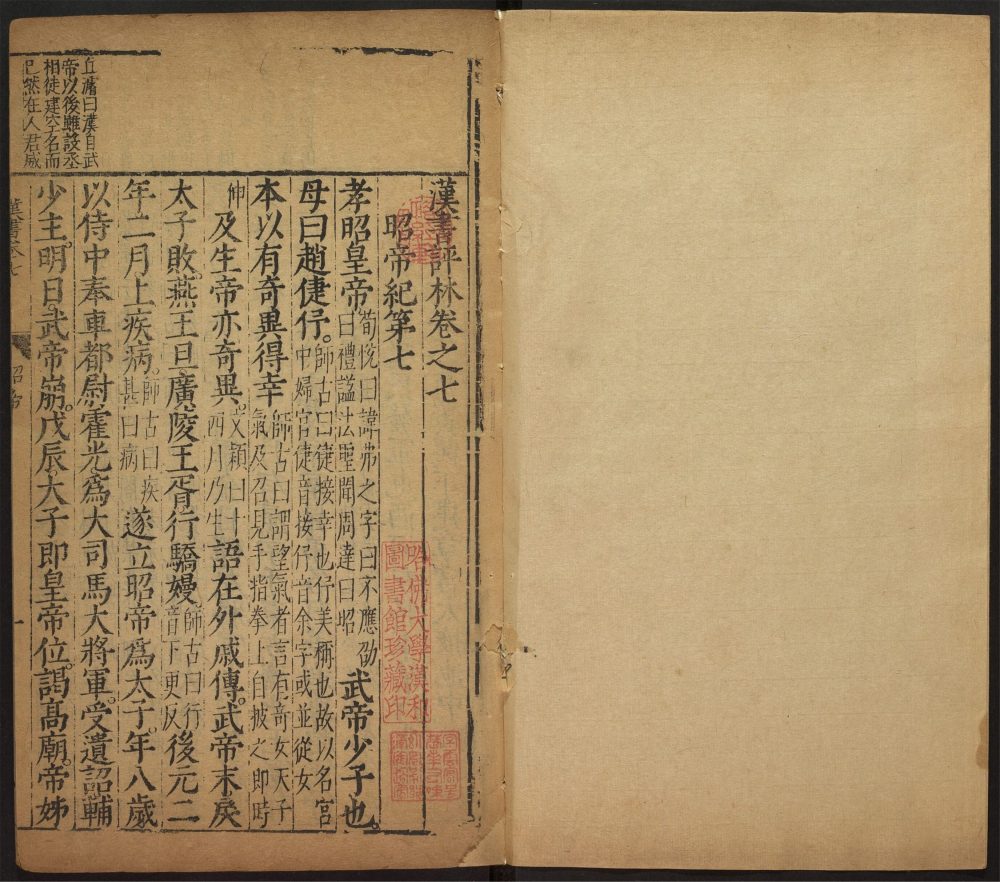 漢書評林卷之七
昭帝紀第七
孝昭皇帝荀悅曰諱弗之字曰不應劭曰禮謚法聖聞周達曰昭武帝少子也
母曰趙倢伃師古曰倢接幸也伃美稱也故以名宮中婦官倢音接伃音余字或並從女
本以有奇異得幸師古曰謂望氣者言有奇女天子氣及召見手指拳上自披之即時
伸及生帝亦奇異文穎曰十四月乃生語在外戚傳武帝末戾
太子敗燕王旦廣陵王胥行驕嫚師古曰行音下更反後元二
年二月上疾病師古曰疾甚曰病遂立昭帝爲太子年八歲
以侍中奉車都尉霍光爲大司馬大將軍受遺詔輔
少主明日武帝崩戊辰太子即皇帝位謁高廟帝姊
丘濬曰漢自武
帝以後雖設丞
相徒建空名而
已然在人君威
漢書卷七
昭帝
一
哈佛大學漢和
圖書館珍藏印